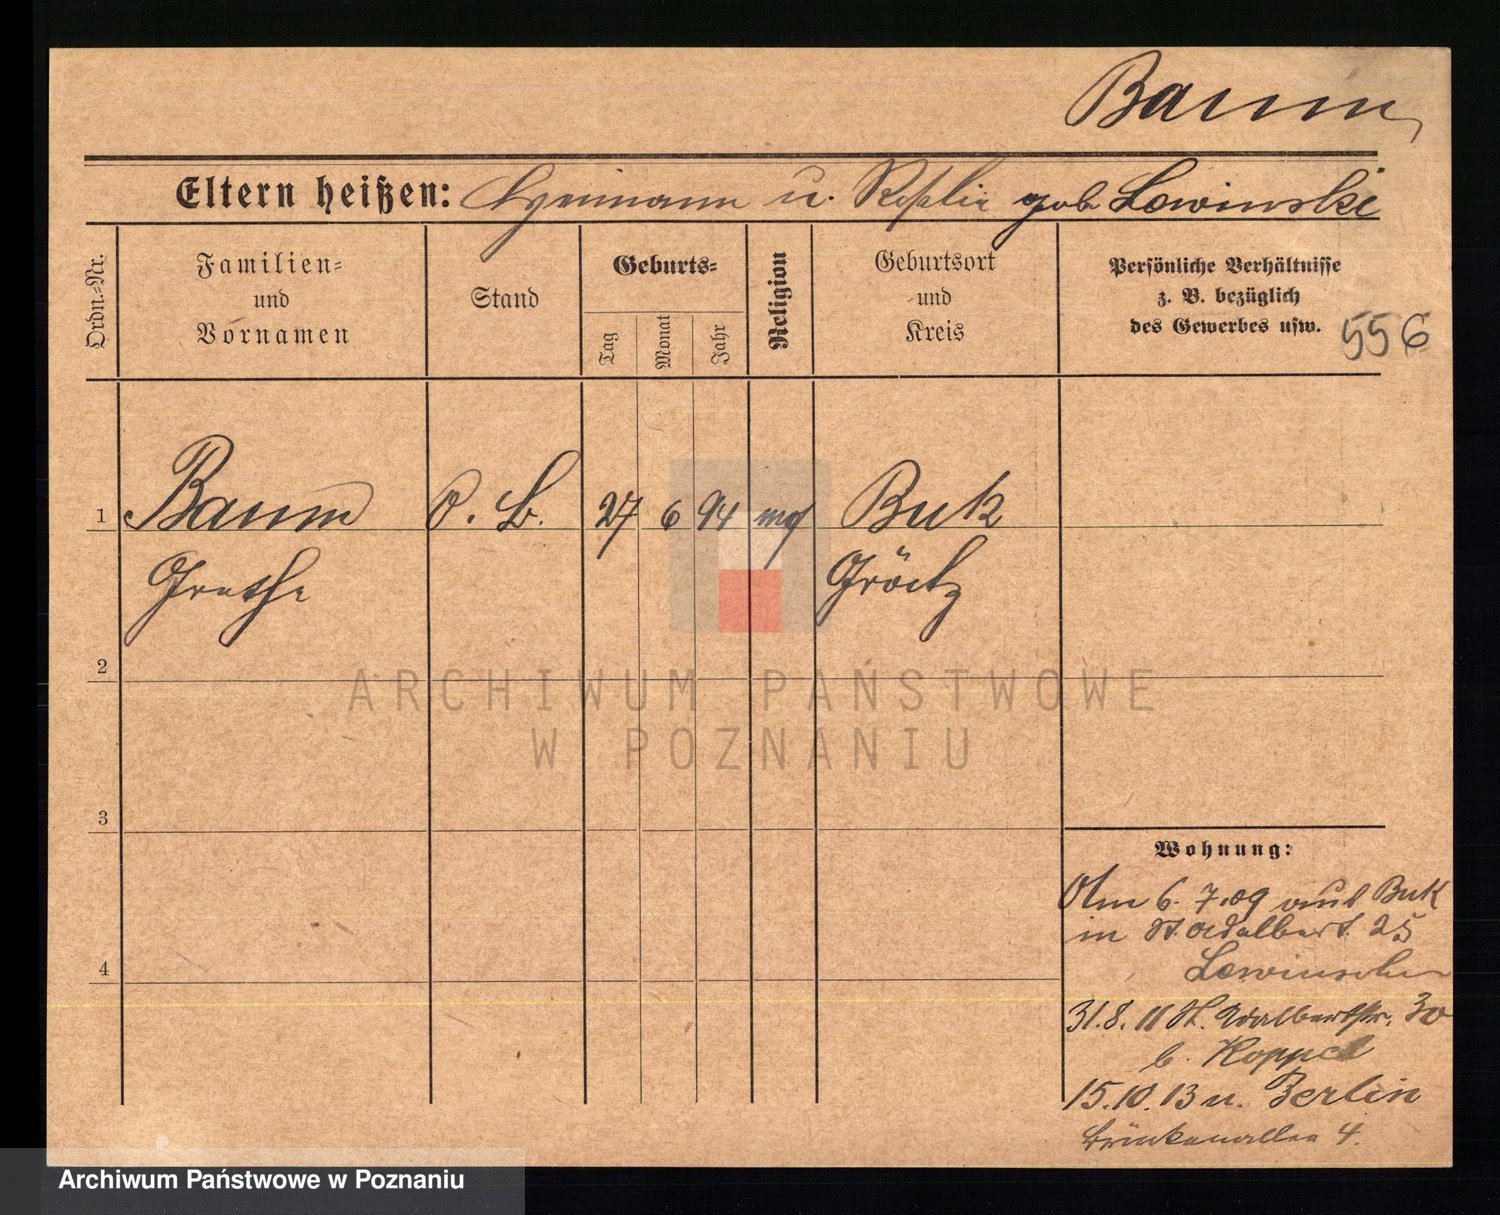 Baum
Eltern heißen: Heimann u. Rosalie geb Lewinski
Ordn.-Nr.
Familien-
und
Vornamen
Stand
Geburts-
Tag
Monat
Jahr
Religion
Geburtsort
und
Kreis
Persönliche Verhältnisse
z. B. bezüglich
des Gewerbes usw.
556
1
Baum
o. B.
27
6
94
mos
Buk
Grethe
Grätz
2
3
4
Wohnung:
Am 6. 7. 09 aus Buk
in St. Adalbert. 25
Lewinsohn
31.8. 11 St. Adalbertstr. 30
b. Koppel
15.10.13 n. Berlin
4.
ARCHIWUM PAŃSTWOWE
W POZNANIU
Archiwum Państwowe w Poznaniu